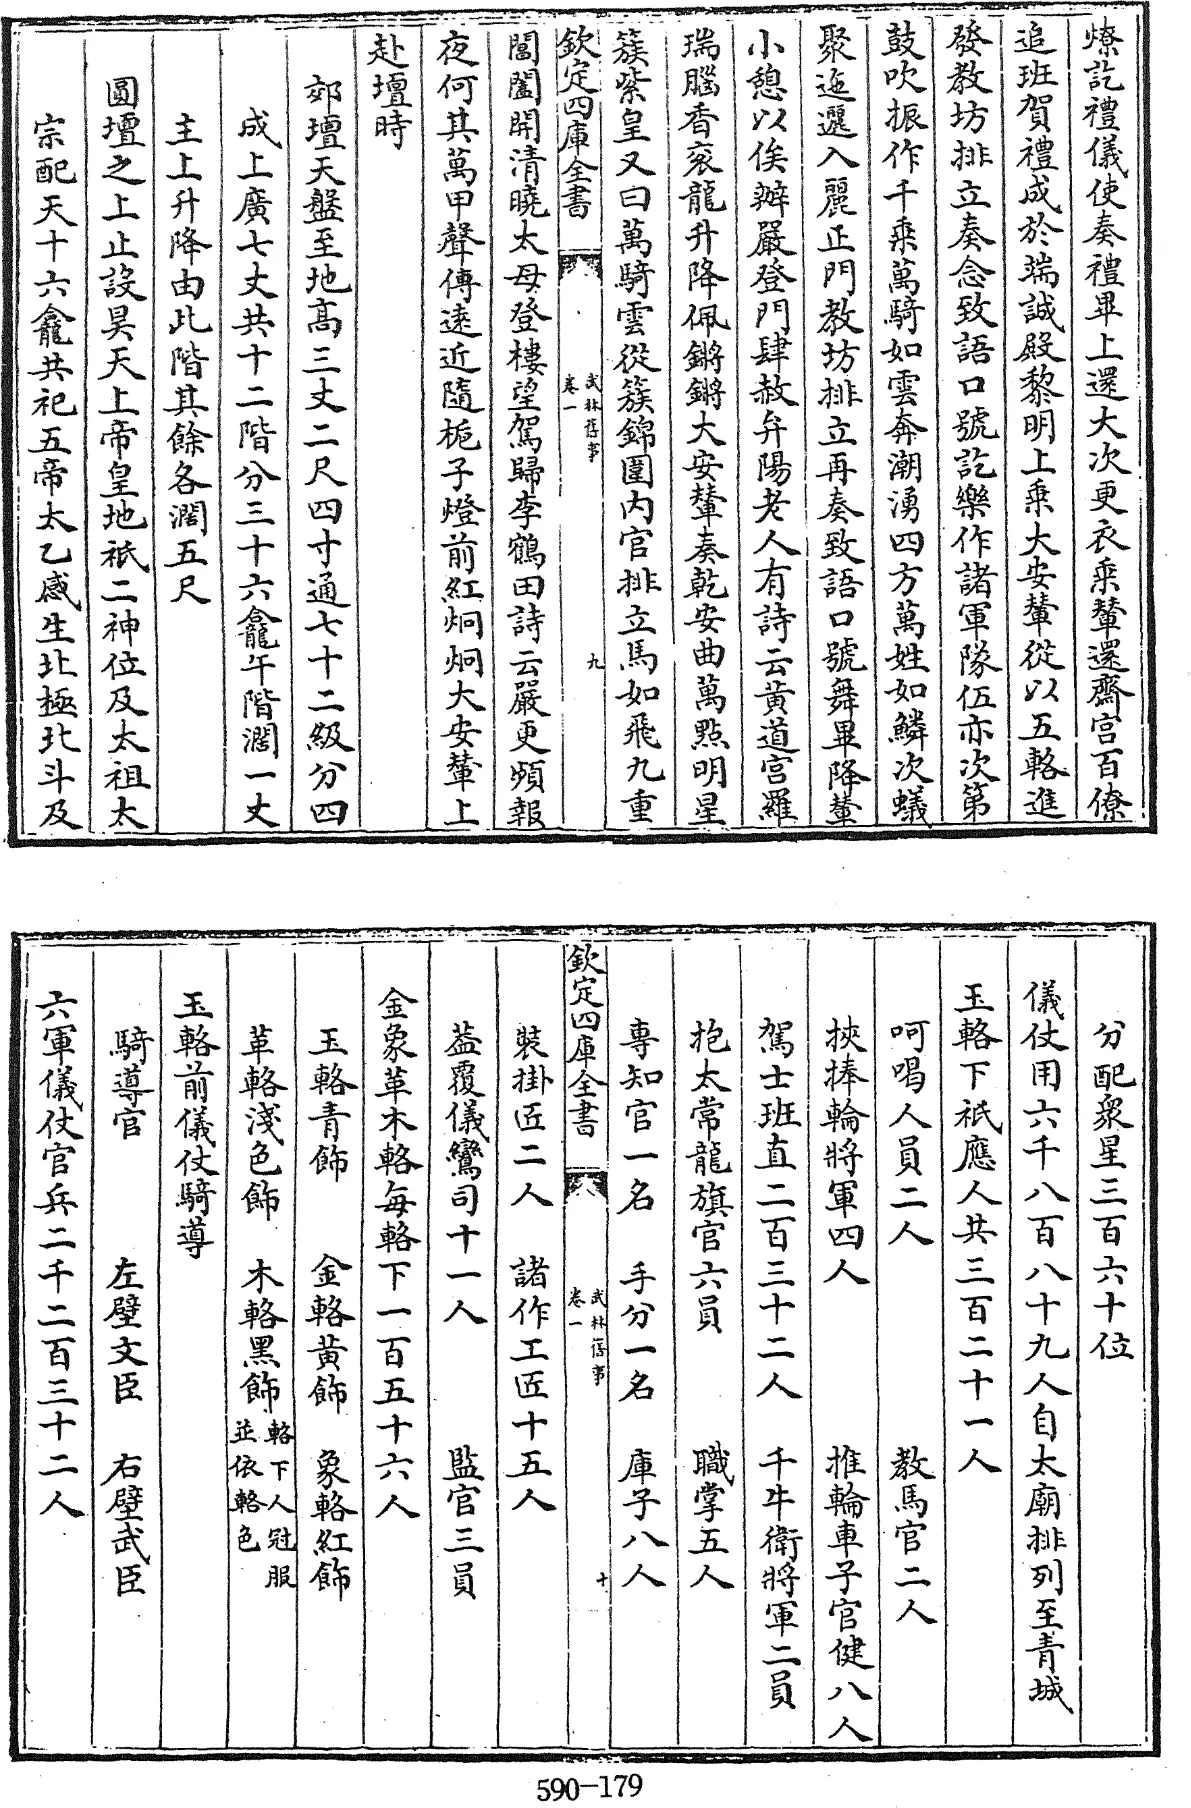 燎訖禮儀使奏禮畢上還大次更衣乘輦還齋宮百僚
追班賀禮成於端誠殿黎明上乘大安輦從以五輅進
發教坊排立奏念致語口號訖樂作諸軍隊伍亦次第
鼓吹振作千乘萬騎如雲奔潮湧四方萬姓如鱗次蟻
聚迤邐入麗正門教坊排立再奏致語口號舞畢降輦
小憩以俟辦嚴登門肆赦弁陽老人有詩云黃道宮羅
瑞腦香衮龍升降佩鏘鏘大安輦奏乾安曲萬點明星
簇紫皇又曰萬騎雲從簇錦圍內官排立馬如飛九重
欽定四庫全書
武林舊事
卷一
九
閶闔開清曉太母登樓望駕歸李鶴田詩云嚴更頻報
夜何其萬甲聲傳遠近隨梔子燈前紅炯炯大安輦上
赴壇時
郊壇天盤至地高三丈二尺四寸通七十二級分四
成上廣七丈共十二階分三十六龕午階濶一丈
主上升降由此階其餘各濶五尺
圓壇之上止設昊天上帝皇地祇二神位及太祖太
宗配天十六龕共祀五帝太乙感生北極北斗及
分配衆星三百六十位
儀仗用六千八百八十九人自太廟排列至青城
玉輅下祇應人共三百二十一人
呵喝人員二人 教馬官二人
挾捧輪將軍四人 推輪車子官健八人
駕士班直二百三十二人 千牛衛將軍二員
抱太常龍旗官六員 職掌五人
專知官一名 手分一名 庫子八人
欽定四庫全書
武林舊事
卷一
十
裝掛匠二人 諸作工匠十五人
葢覆儀鸞司十一人 監官三員
金象革木輅每輅下一百五十六人
玉輅青飾 金輅黃飾 象輅紅飾
革輅淺色飾 木輅黑飾 輅下人冠服
並依輅色
玉輅前儀仗騎導
騎導官 左壁文臣 右壁武臣
六軍儀仗官兵二千二百三十二人
590-179